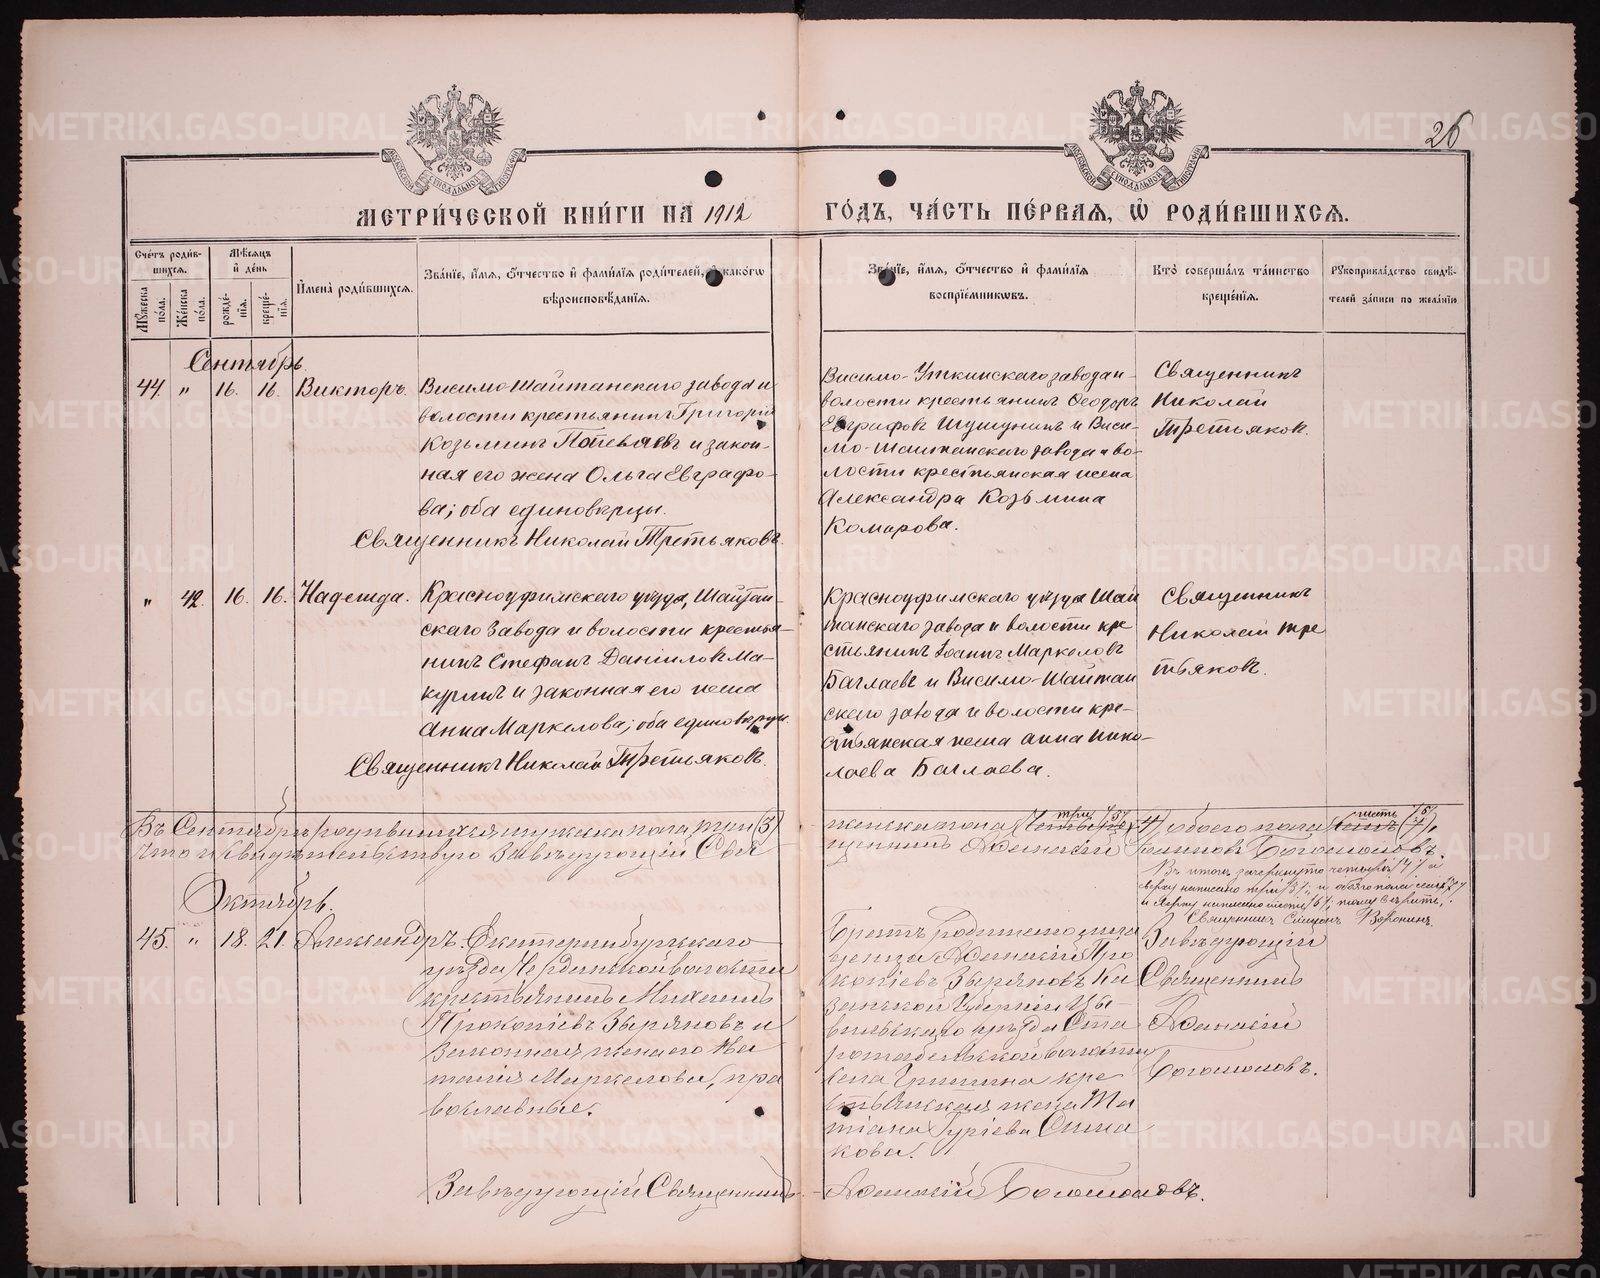 26
МЕТРИ́ЧЕСКОЙ КНИ́ГИ НА 1912
ГО́ДЪ, ЧА́СТЬ ПЕ́РВАЯ, Ѡ РОДИ́ВШИХСѦ.
Сче́тъ роди́в-
шихсѧ.
Мꙋ́жеска по́ла.
Же́нска по́ла.
Мѣ́сѧцъ
и де́нь
рожде́-
нїѧ.
креще́-
нїѧ.
И҆мена̀ роди́вшихсѧ.
Зва́нїе, и҆́мѧ, ѻ҆́тчество и҆ фами́лїѧ роди́телей, и҆ како́гѡ
вѣроисповѣ́данїѧ.
Зва́нїе, и҆́мѧ, ѻ҆́тчество и҆ фами́лїѧ
воспрїе́мникѡвъ.
Кто̀ соверша́лъ та́инство
креще́нїѧ.
Рꙋкоприкла́дство свидѣ́-
телей за́писи по жела́нїю
Сентябрь.
44. " 16. 16. Викторъ.
Висимо-Шайтанскаго завода и
волости крестьянинъ Григорій
Козьминъ и закон-
ная его жена Ольга Евграфо-
ва; оба единовѣрцы.
Священникъ Николай Третьяковъ.
Висимо-Уткинскаго завода и
волости крестьянинъ Ѳеодоръ
Евграфовъ Шушунинъ и Виси-
мо-Шайтанскаго завода и во-
лости крестьянская жена
Александра Козьмина
Комарова.
Священникъ
Николай
Третьяковъ.
" 42. 16. 16. Надежда.
Красноуфимскаго уѣзда, Шайтан-
скаго завода и волости крестья-
нинъ Стефанъ Даніиловъ Ма-
куринъ и законная его жена
Анна Маркелова; оба единовѣрцы.
Священникъ Николай Третьяковъ.
Красноуфимскаго уѣзда Шай
танскаго завода и волости кре
стьянинъ Іоаннъ Маркеловъ
Баглаевъ и Висимо-Шайтан
скаго завода и волости кре-
стьянская жена Анна Нико-
лаева Баглаева.
Священникъ
Николай Тре
тьяковъ.
Въ Сентябрѣ родившихся мужеска пола три (3)
женска пола четыре (4) три /3/ обоего пола семь (7) шесть /6/,
Что и свидѣтельствую Завѣдующій Свя
щенникъ Аѳанасій Богомоловъ.
Въ итогѣ зачеркнуто четыре /4/ а
сверху написано три /3/; и обоего пола семь /7/
и сверху написано шесть /6/; тому вѣрить.
Священникъ Симеонъ Воронинъ.
Октябрь.
45. " 18. 21. Александръ.
Екатеринбургскаго
уѣзда волости
крестьянинъ Михаилъ
Прокопіевъ Зыряновъ и
законная жена его На
талія Маркелова, пра
вославные.
Братъ родителю мла
денца Аѳанасій Про
копіевъ Зыряновъ Ка
занской Губерніи Ци
вильскаго уѣзда Ста
волости
кре
стьянская жена Та
тіана Гуріева
кова.
Завѣдующій
Священникъ
Аѳанасій
Богомоловъ.
Завѣдующій Священникъ Аѳанасій Богомоловъ.
METRIKI.GASO-URAL.RU